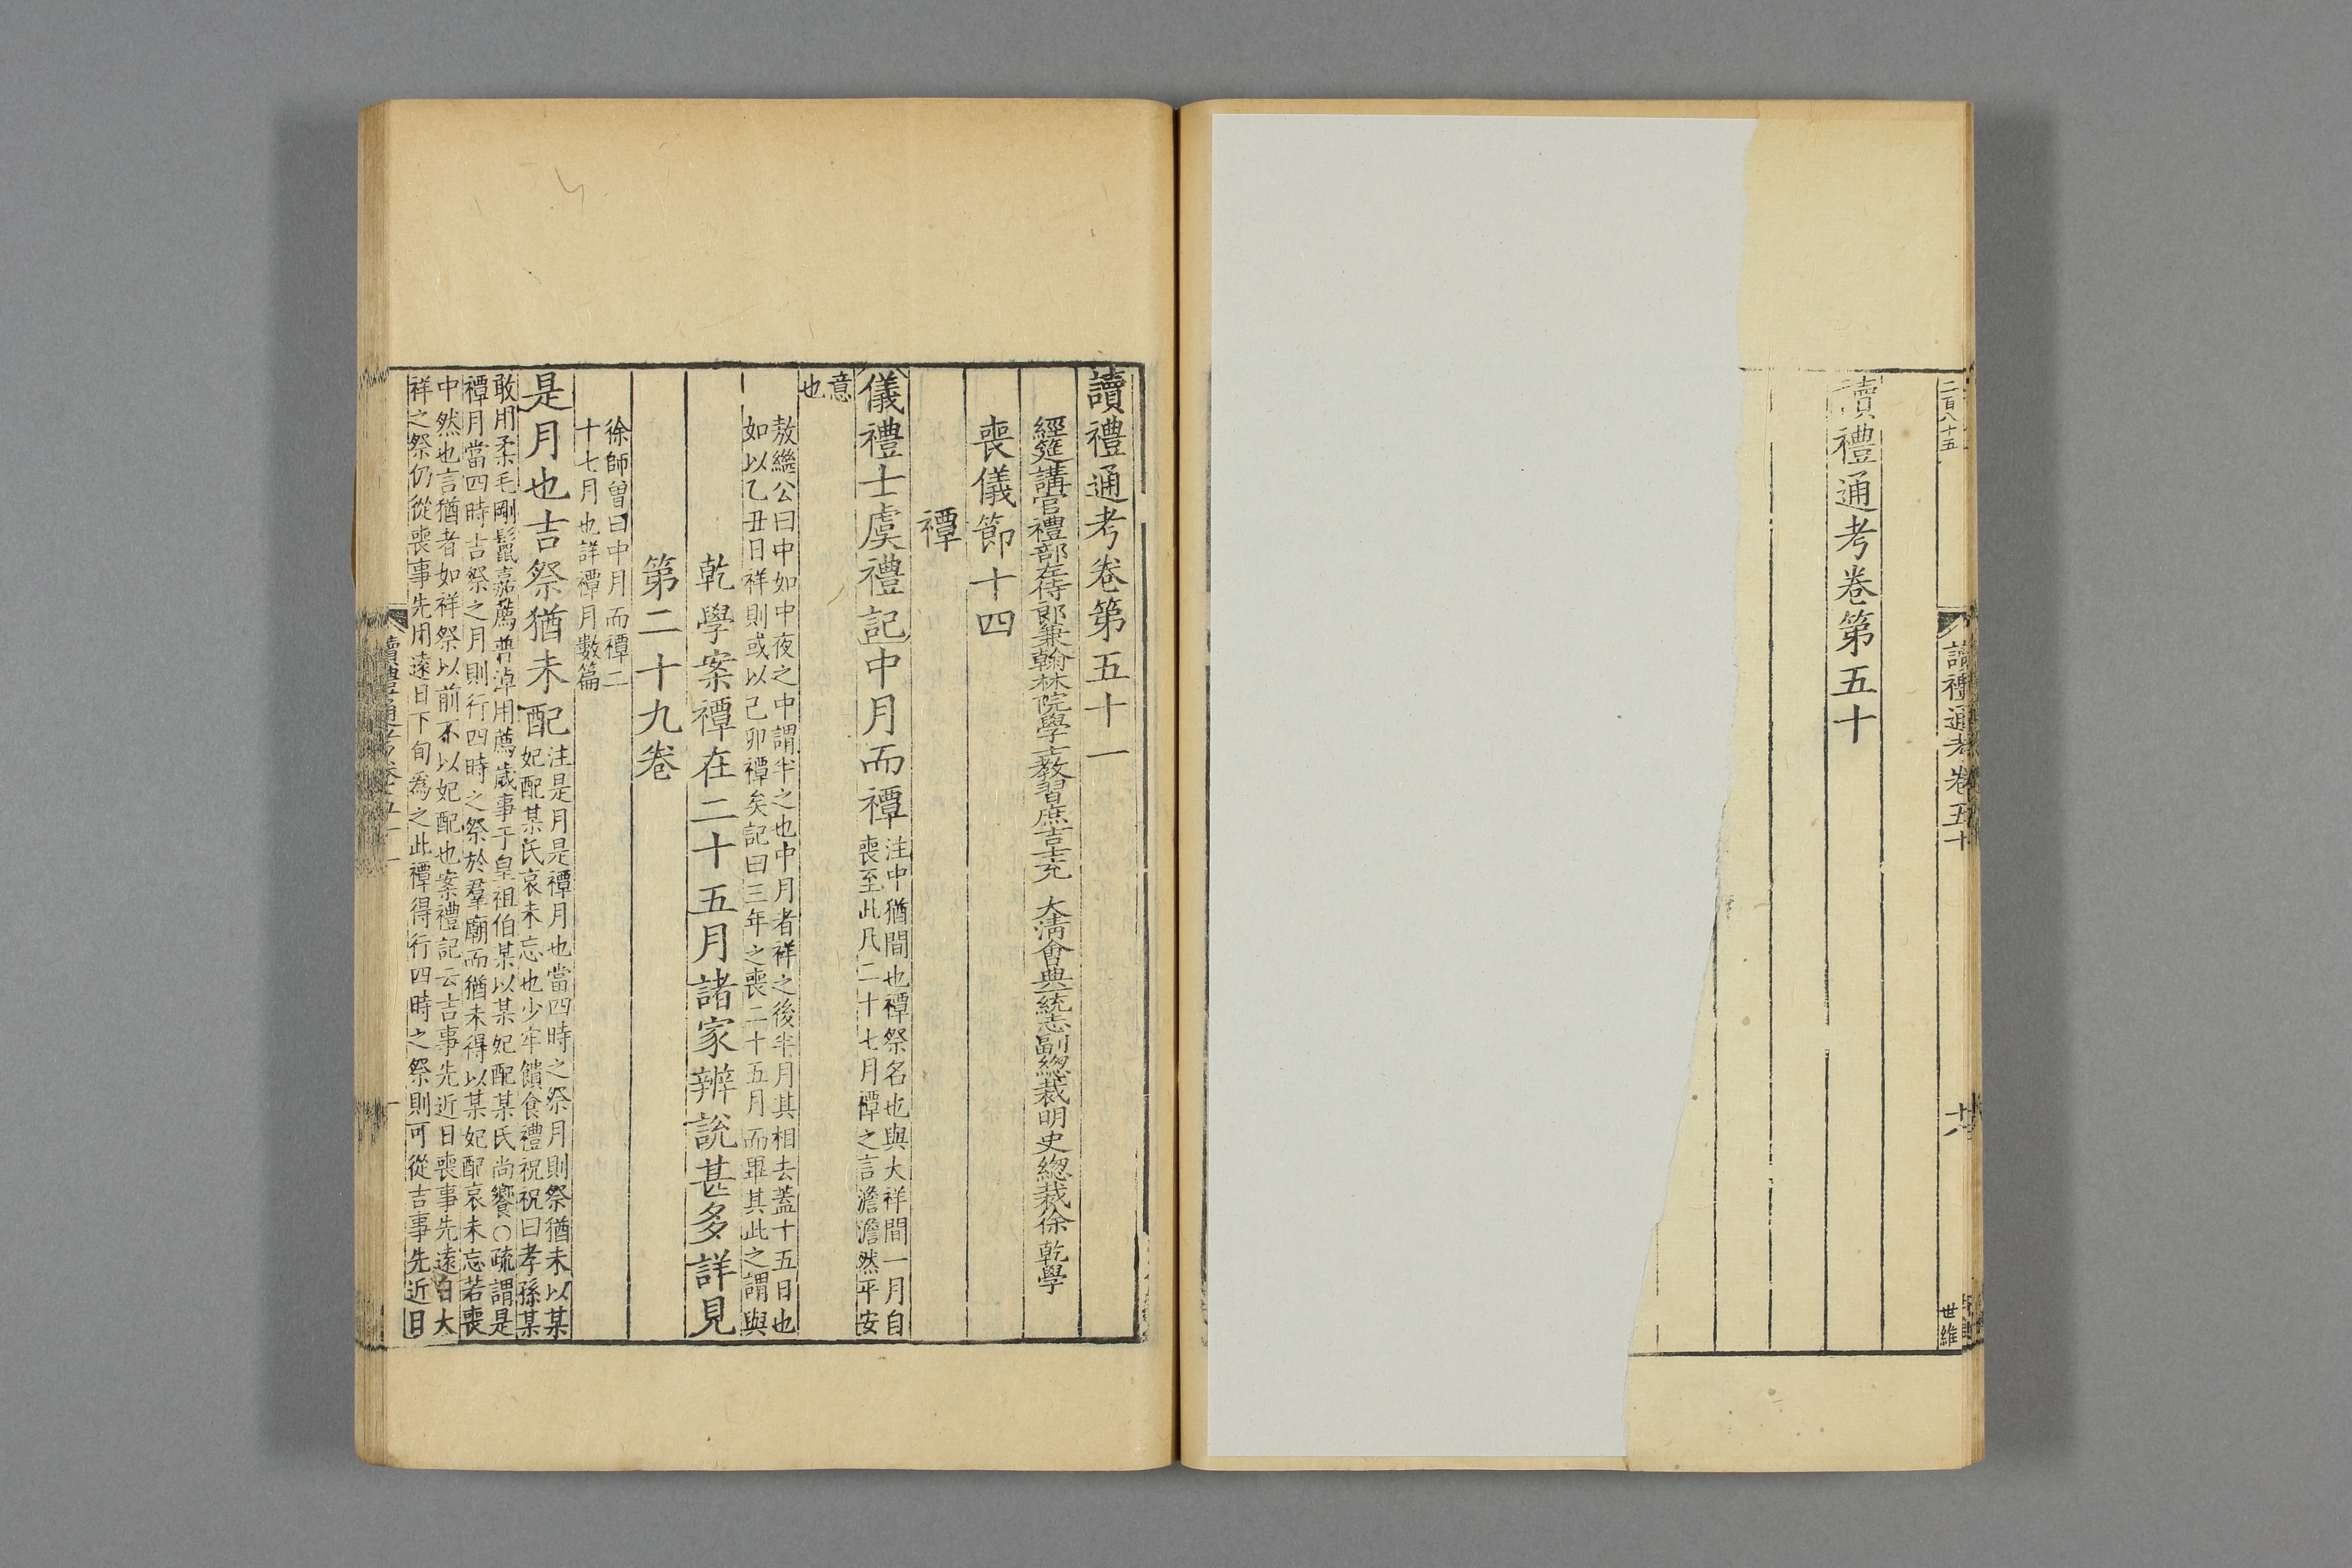 二百八十五
讀禮通考卷五十
十八
世維
讀禮通考卷第五十
讀禮通考卷第五十一
經筵講官禮部左侍郎兼翰林院學士教習庶吉士充 大清會典一統志副總裁明史總裁徐乾學
喪儀節十四
禫
儀禮士虞禮記中月而禫
注中猶間也禫祭名也與大祥間一月自
喪至此凡二十七月禫之言澹澹然平安
意
也
敖繼公曰中如中夜之中謂半之也中月者祥之後半月其相去蓋十五日也
如以乙丑日祥則或以己卯禫矣記曰三年之喪二十五月而畢其此之謂與
乾學案禫在二十五月諸家辨說甚多詳見
第二十九卷
徐師曾曰中月而禫二
十七月也詳禫月數篇
是月也吉祭猶未配
注是月是禫月也當四時之祭月則祭猶未以某
妃配某氏哀未忘也少牢饋食禮祝祝曰孝孫某
敢用柔毛剛鬣嘉薦普淖用薦歲事于皇祖伯某以某妃配某氏尚饗○疏謂是
禫月當四時吉祭之月則行四時之祭於羣廟而猶未得以某妃配哀未忘若喪
中然也言猶者如祥祭以前不以妃配也案禮記云吉事先近日喪事先遠日大
祥之祭仍從喪事先用遠日下旬為之此禫得行四時之祭則可從吉事先近日
讀禮通考卷五十一
一